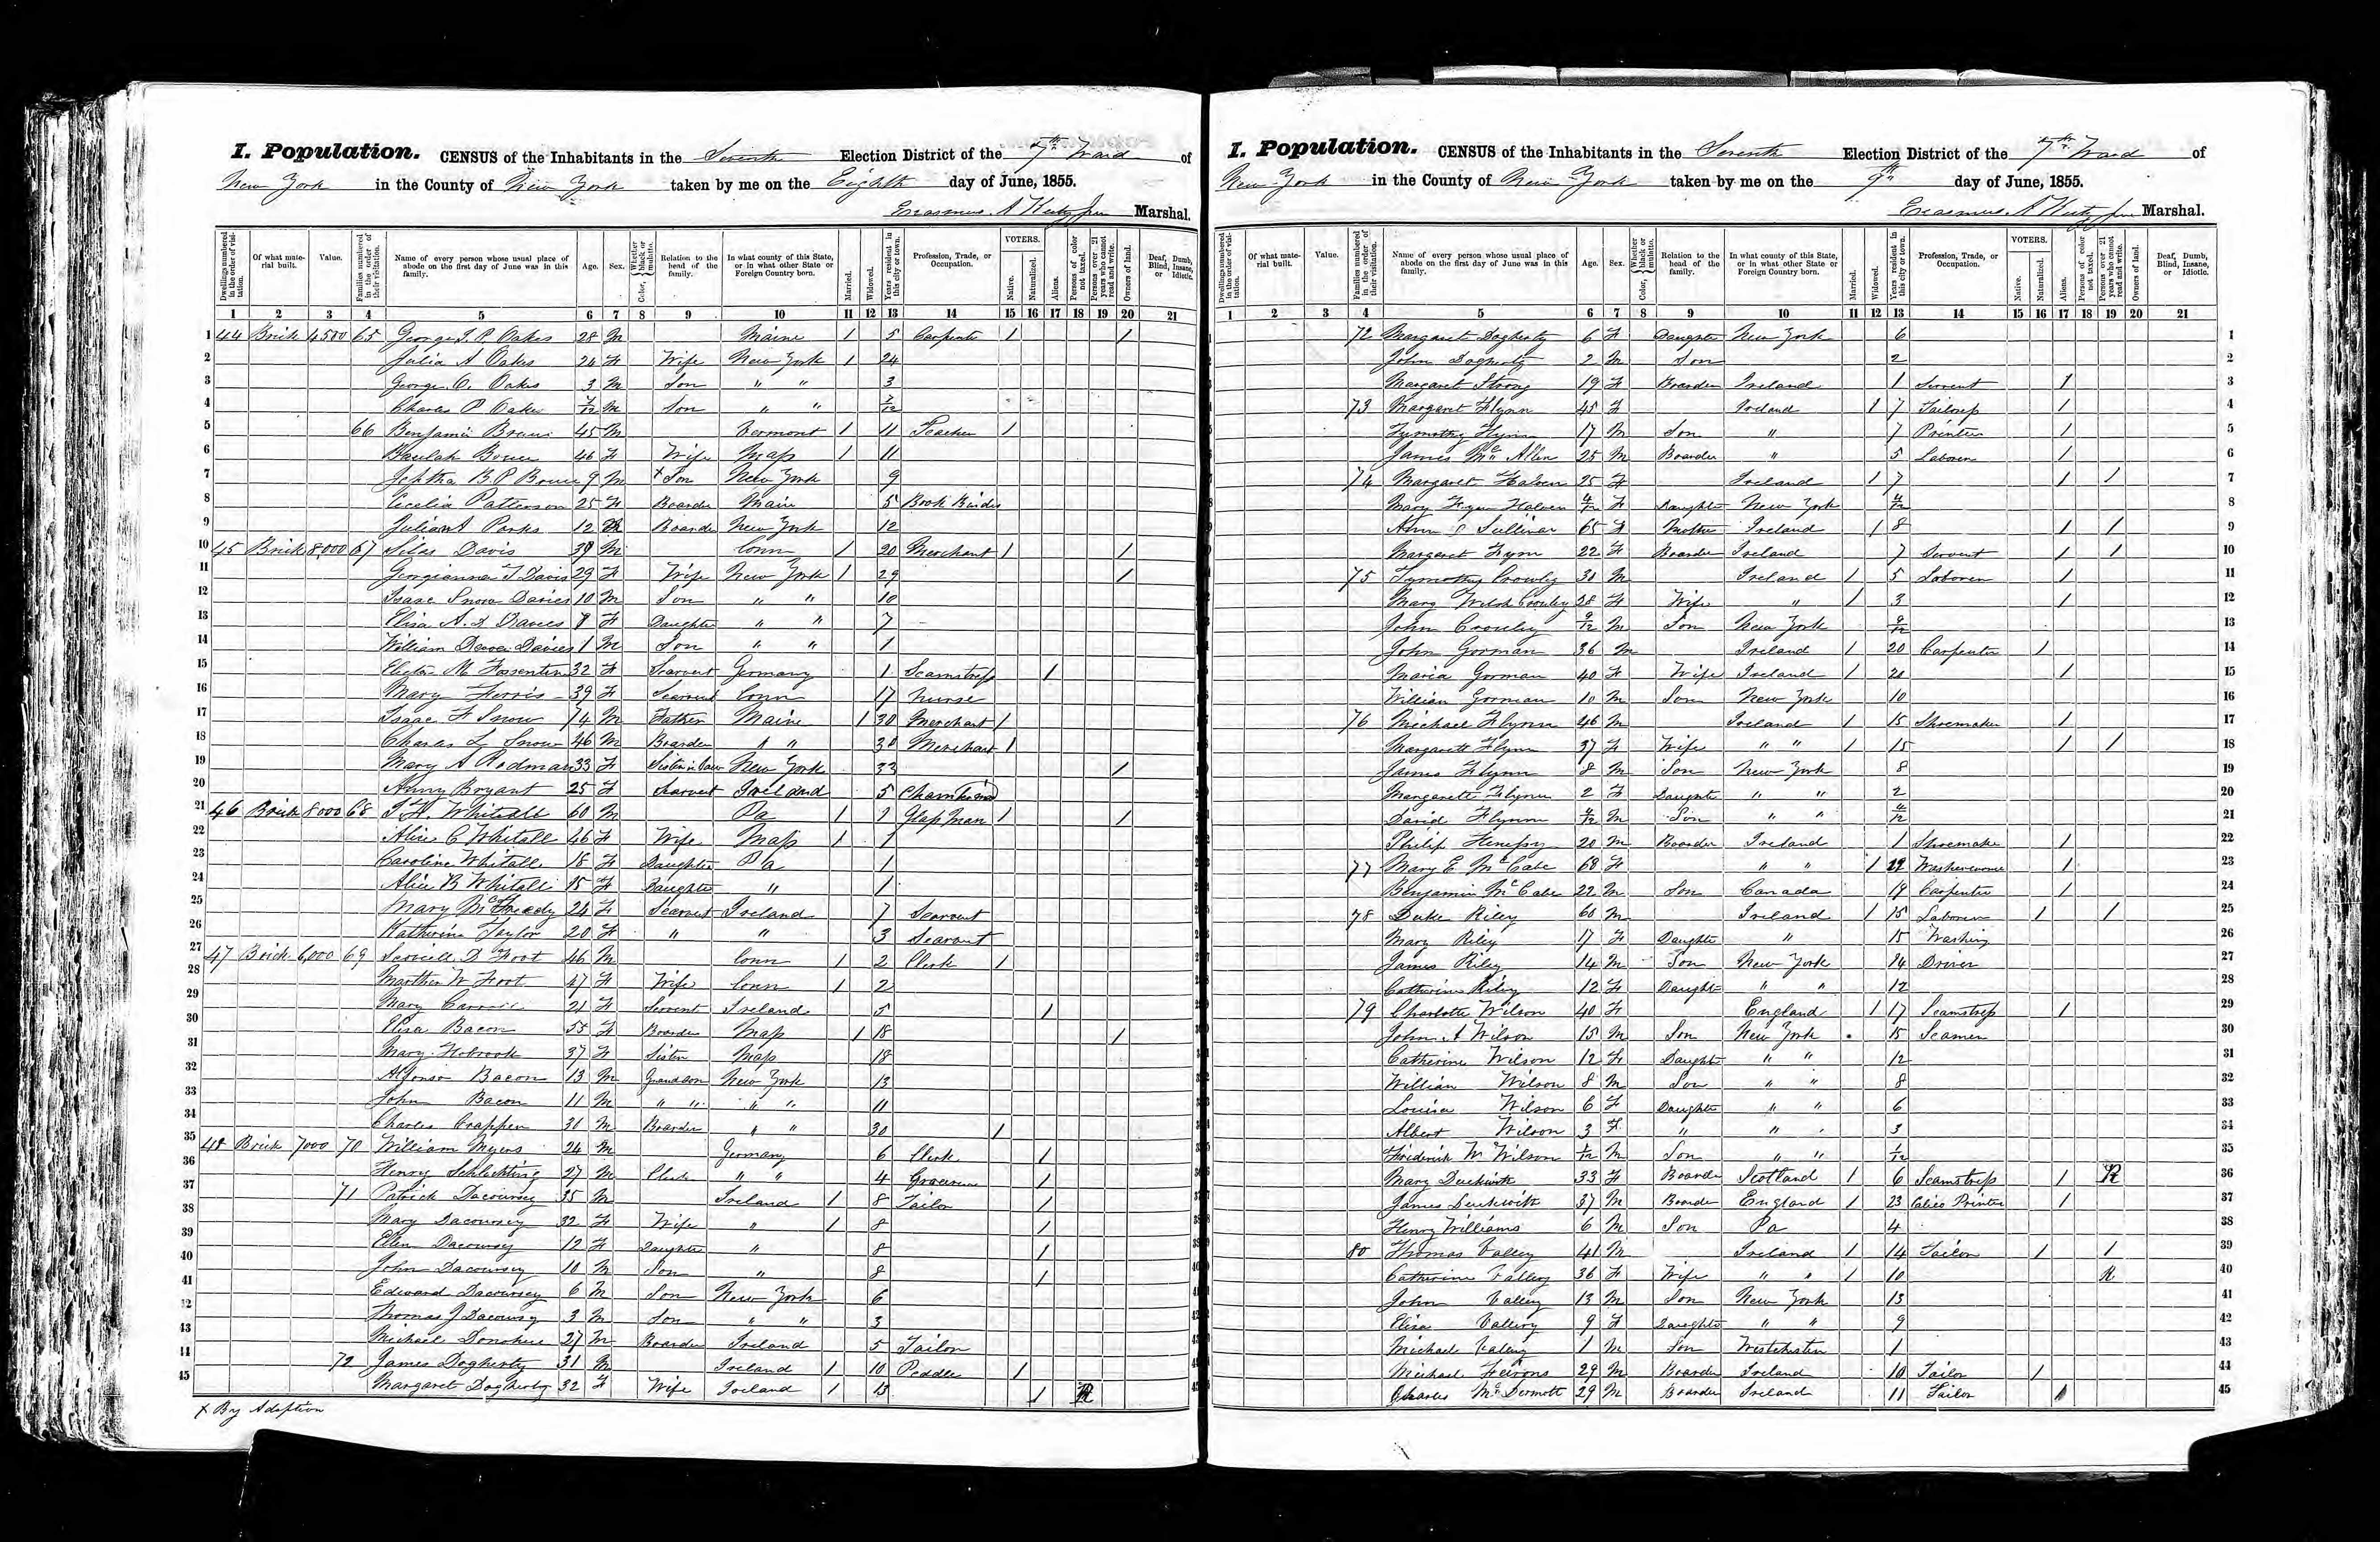 I. Population. CENSUS of the Inhabitants in the Seventh Election District of the 7th Ward of
New York in the County of New York taken by me on the Eighth day of June, 1855.
Erasmus A Marshal.
Dwellings numbered in the order of visitation. Of what material built. Value. Families numbered in the order of their visitation. Name of every person whose usual place of abode on the first day of June was in this family. Age. Sex. Color, Whether black or mulatto. Relation to the head of the family. In what county of this State, or in what other State or Foreign Country born. Married. Widowed. Years resident in this city or town. Profession, Trade, or Occupation. VOTERS. Native. Naturalized. Aliens. Persons of color not taxed. Persons over 21 years who cannot read and write. Owners of land. Deaf, Dumb, Blind, Insane, or Idiotic.
1 2 3 4 5 6 7 8 9 10 11 12 13 14 15 16 17 18 19 20 21
1 44 Brick 4500 65 George Oakes 28 M Maine 1 5 Carpenter 1 1
2 Julia A Oakes 24 F Wife New York 1 24
3 George C. Oakes 3 M Son " " 3
4 Charles P Oakes 7/12 M Son " " 7/12
5 66 Benjamin 45 M Vermont 1 11 Teacher 1
6 Beulah 46 F Wife Mass 1 11
7 Jeptha B. P 9 M x Son New York 9
8 Cecelia Patterson 25 F Boarder Main 5 Book Binder
9 Parks 12 Boarder New York 12
10 45 Brick 8,000 67 Silas Davis M Conn 1 20 Merchant 1 1
11 Georgianna T Davis 29 F Wife New York 1 29 1
12 Isaac Snow Davies 10 M Son " " 10
13 Eliza A. Davies F Daughter " " 7
14 William Davies 1 M Son " " 1
15 M 32 F Searvent Germany 1 Seamstress 1
16 Mary Ferris 39 F Searvent Conn 17 Nurse
17 Isaac F Snow 74 M Father Maine 1 30 Merchant 1
18 Charles L Snow 46 M Boarder " " 30 Merchant 1
19 Mary A Redman 33 F Sister in Law New York 33 1
20 Bryant 25 F Searvent 5
21 46 Brick 8000 68 Whitall 60 M Pa 1 1 Glass Man 1 1
22 Alice C Whitall 46 F Wife Mass 1 1
23 Caroline Whitall 18 F Daughter Pa 1
24 Alice B Whitall 15 F Daughter " 1
25 Mary 24 F Searvent Ireland 7 Searvent
26 Katherine Taylor 20 F " " 3 Searvent
27 47 Brick 6,000 69 D Foot 46 M Conn 1 2 Clerk 1
28 Marther W Foot 47 F Wife Conn 1 2
29 Mary 21 F Servent Ireland 5 1
30 Eliza Bacon 55 F Boarder Mass 1 18 1
31 Mary 37 F Sister Mass 18
32 Alfonso Bacon 13 M Grandson New York 13
33 John Bacon 11 M " " " " 11
34 Charles 30 M Boarder " " 30 1
35 48 Brick 7000 70 William Myers 24 M Germany 6 Clerk 1
36 Henry Schlichting 27 M Clerk " " 4 1
37 71 Patrick Dacoursey 35 M Ireland 1 8 Tailor 1
38 Mary Dacoursey 32 F Wife " 1 8 1
39 Ellen Dacoursey 12 F Daughter " 8 1
40 John Dacoursey 10 M Son " 8 1
41 Edward Dacoursey 6 M Son New York 6
42 Thomas J Dacoursey 3 M Son " " 3
43 Michael Donohue 27 M Boarder Ireland 5 Tailor
44 72 James Dogherty 31 M Ireland 1 10 Peddler 1
45 Margaret Dogherty 32 F Wife Ireland 1 13 1 R
x By Adoption
I. Population. CENSUS of the Inhabitants in the Seventh Election District of the 7th Ward of
New York in the County of New York taken by me on the 9th day of June, 1855.
Erasmus A Marshal.
Dwellings numbered in the order of visitation. Of what material built. Value. Families numbered in the order of their visitation. Name of every person whose usual place of abode on the first day of June was in this family. Age. Sex. Color, Whether black or mulatto. Relation to the head of the family. In what county of this State, or in what other State or Foreign Country born. Married. Widowed. Years resident in this city or town. Profession, Trade, or Occupation. VOTERS. Native. Naturalized. Aliens. Persons of color not taxed. Persons over 21 years who cannot read and write. Owners of land. Deaf, Dumb, Blind, Insane, or Idiotic.
1 2 3 4 5 6 7 8 9 10 11 12 13 14 15 16 17 18 19 20 21
72 Margaret Dogherty 6 F Daughter New York 6 1
John Dogherty 2 M Son 2 2
Margaret Strong 19 F Boarder Ireland 1 Servent 1 3
73 Margaret Flynn 45 F Ireland 1 7 Tailoress 1 4
Tymothy Flynn 17 M Son " 7 Printer 1 5
James Mc Allen 25 M Boarder " 5 Laborer 1 6
74 Margaret Halven 25 F Ireland 1 7 1 1 7
Mary Halven 4/12 F Daughter New York 4/12 8
Ann Sullivan 65 F Mother Ireland 1 8 1 1 9
Margaret Flynn 22 F Boarder Ireland 7 Servent 1 1 10
75 Tymothy Crowley 30 M Ireland 1 5 Laborer 1 11
Mary Welsh Crowley 28 F Wife " 1 3 1 12
John Crowley 9/12 M Son New York 9/12 13
John Gorman 36 M Ireland 1 20 Carpenter 1 14
Maria Gorman 40 F Wife Ireland 1 20 1 15
William Gorman 10 M Son New York 10 16
76 Michael Flynn 46 M Ireland 1 15 Shoemaker 1 17
Margarett Flynn 37 F Wife " " 1 15 1 1 18
James Flynn 8 M Son New York 8 19
Margarett Flynn 2 F Daughter " " 2 20
David Flynn 4/12 M Son " " 4/12 21
Philip Henessy 20 M Boarder Ireland 1 Shoemaker 1 22
77 Mary E McCabe 60 F " " 1 Washerwoman 1 23
Benjamin McCabe 22 M Son Canada 19 Carpenter 1 24
78 Duke Riley 60 M Ireland 1 15 Laborer 1 1 25
Mary Riley 17 F Daughter " 15 Washing 26
James Riley 14 M Son New York 14 Driver 27
Catherine Riley 12 F Daughter " " 12 28
79 Charlotte Wilson 40 F England 1 17 Seamstress 1 29
John A Wilson 15 M Son New York 15 Seamen 30
Catherine Wilson 12 F Daughter " " 12 31
William Wilson 8 M Son " " 8 32
Louisa Wilson 6 F Daughter " " 6 33
Albert Wilson 3 F " " " 3 34
Friderick W Wilson 1/12 M Son " " 1/12 35
Mary Duckwith 33 F Boarder Scotland 1 6 Seamstress 1 R 36
James Duckwith 37 M Boarder England 1 23 Calico Printer 1 37
Henry Williams 6 M Son Pa 4 38
80 Thomas Vallery 41 M Ireland 1 14 Tailor 1 1 39
Catherine Vallery 36 F Wife " " 1 10 R 40
John Vallery 13 M Son New York 13 41
Eliza Vallery 9 F Daughter " " 9 42
Michael Vallery 1 M Son Westchester 1 43
Michael 29 M Boarder Ireland 10 Tailor 1 44
Charles McDermott 29 M Boarder Ireland 11 Tailor 1 45